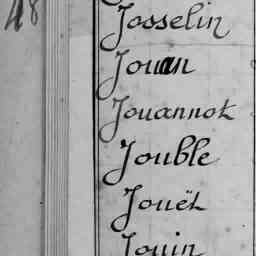 48
Josselin
Jouan
Jouannot
Jouble
Jouët
Jouin